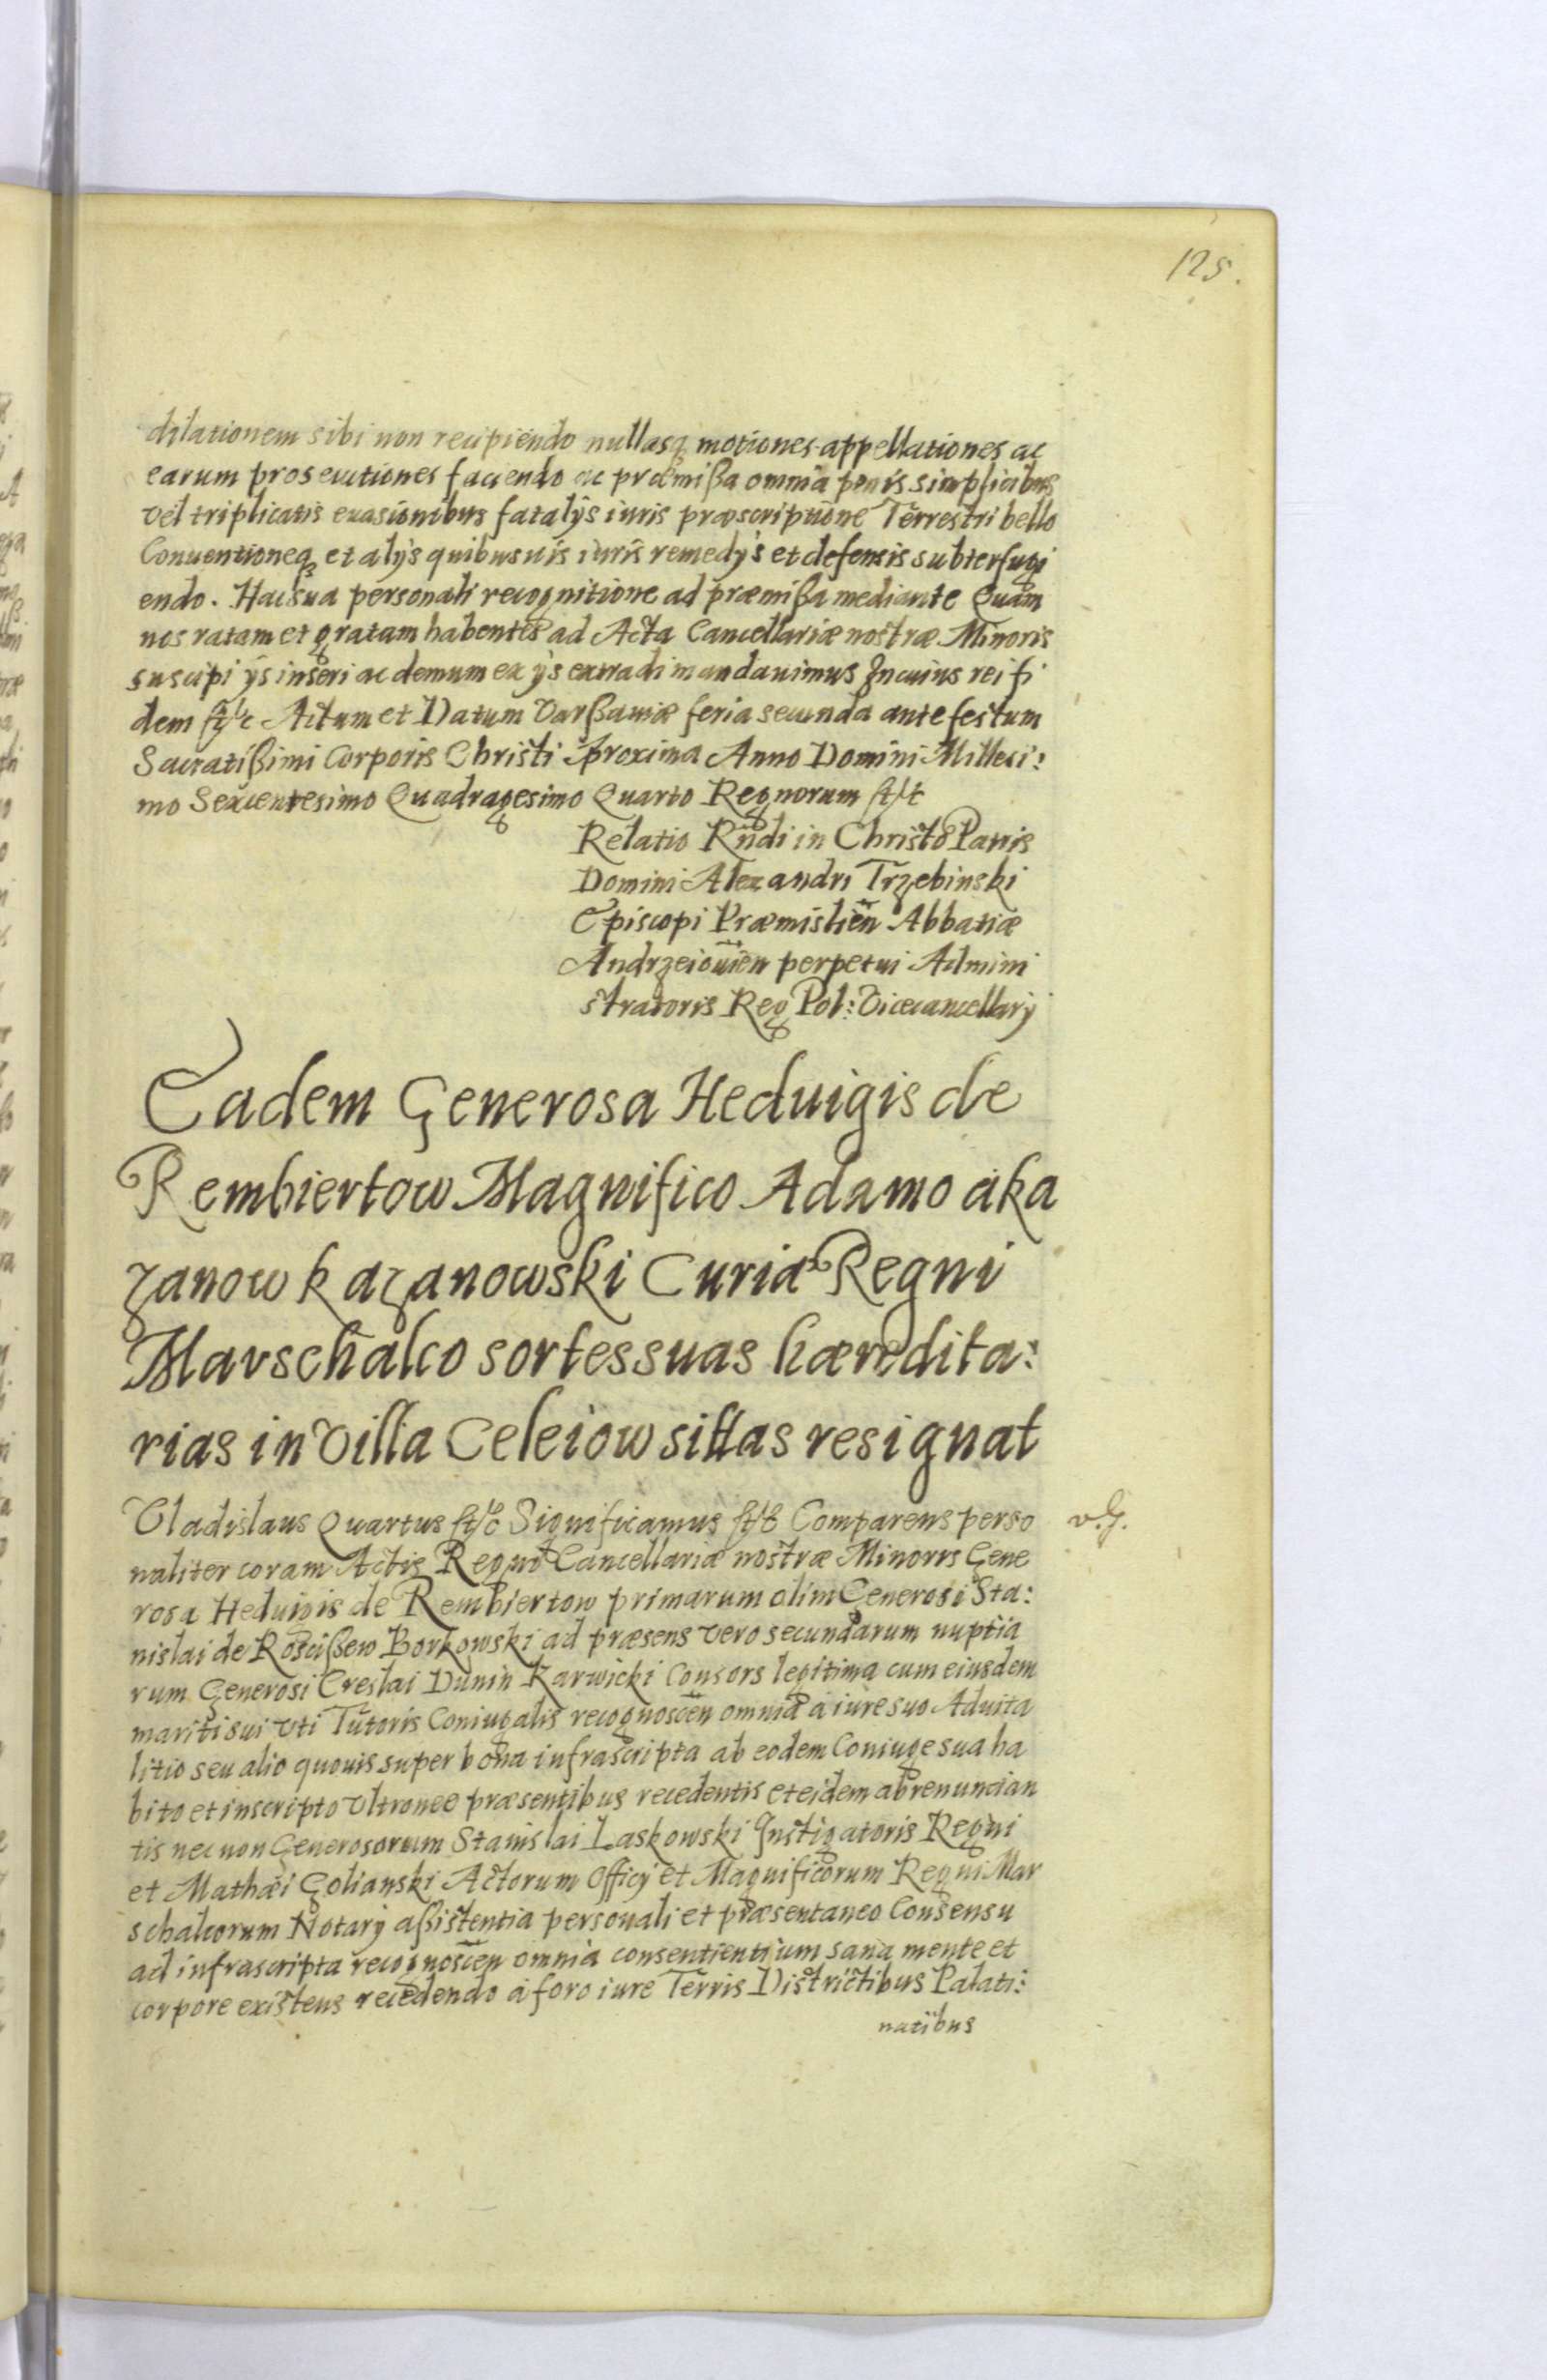 125.
dilationem sibi non recipiendo nullasq motiones appellationes ac
earum prosecutiones faciendo ac præmißa omnia penis simplicibus
vel triplicatis euasionibus fatalÿs iuris præscriptione Terrestri bello
Conuentioneq et alÿs quibusuis iuris remedÿs et defensis subterfugi
endo. Hac sua personali recognitione ad præmißa mediante Quam
nos ratam et gratam habentes ad Acta Cancellariæ nostræ Minoris
suscipi ÿs inseri ac demum ex ÿs extradi mandauimus In cuius rei fi
dem &c Actum et Datum Varßauiæ feria secunda ante festum
Sacratißimi Corporis Christi proxima Anno Domini Millesi:
mo Sexcentesimo Quadragesimo Quarto Regnorum &c
Relatio Rndi in Christo Patris
Domini Alexandri Trzebinski
Episcopi Præmislien Abbatiæ
Andrzeiouien perpetui Admini
stratoris Reg Pol: Vicecancellarÿ
Eadem Generosa Heduigis de
Rembiertow Magnifico Adamo á ka
zanow kazanowski Curiæ Regni
Marschalco sortes suas hæredita:
rias in Villa Celeiow sittas resignat
Vladislaus Quartus &c Significamus &c Comparens perso
v.G.
naliter coram Actis Regni Cancellariæ nostræ Minoris Gene
rosa Heduigis de Rembiertow primarum olim Generosi Sta:
nislai de Roscißew Borkowski ad præsens vero secundarum nuptia
rum Generosi Creslai Dunin Karwicki Consors legitima cum eiusdem
mariti sui vti Tutoris Coniugalis recognoscen omnia á iure suo Aduita
litio seu alio quouis super bona infrascripta ab eodem Coniuge sua ha
bito et inscripto vltronee præsentibus recedentis et eidem abrenuncian
tis nec non Generosorum Stanislai Laskowski Instigatoris Regni
et Mathæi Golianski Actorum Officÿ et Magnificorum Regni Mar
schalcorum Notarÿ aßistentia personali et præsentaneo Consensu
ad infrascripta recognoscen omnia consentientium sana mente et
corpore existens recedendo á foro iure Terris Districtibus Palati:
natibus